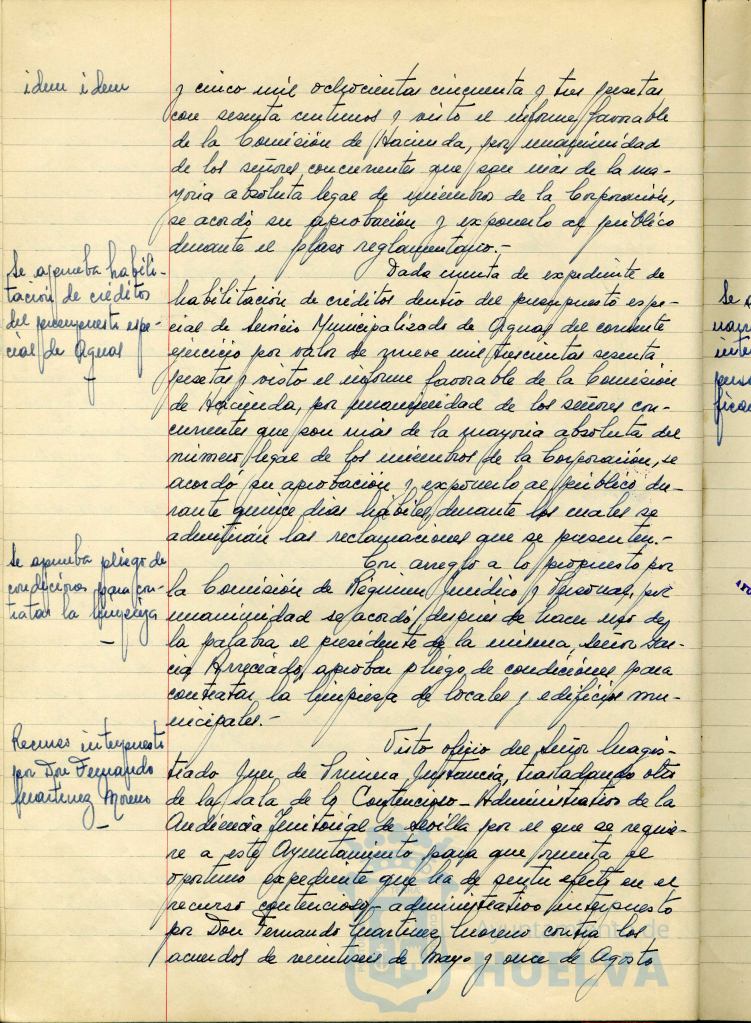 idem idem
y cinco mil ochocientas cincuenta y tres pesetas
con sesenta centimos y visto el informe favorable
de la Comisión de Hacienda, por unanimidad
de los señores concurrentes que son más de la ma-
yoria absoluta legal de miembros de la Corporación,
se acordó su aprobación y exponerlo al público
durante el plazo reglamentario.-
Se aprueba habili-
tación de créditos
del presupuesto espe-
cial de Aguas
Dada cuenta de expediente de
habilitación de créditos dentro del presupuesto espe-
cial de Servicio Municipalizado de Aguas del corriente
ejercicio por valor de nueve mil trescientas sesenta
pesetas y visto el informe favorable de la Comisión
de Hacienda, por unanimidad de los señores con-
currentes que son más de la mayoria absoluta del
número legal de los miembros de la Corporación, se
acordó su aprobación y exponerlo al público du-
rante quince dias hábiles, durante los cuales se
admitirán las reclamaciones que se presenten.-
Se aprueba pliego de
condiciones para con-
tratar la limpieza
Con arreglo a lo propuesto por
la Comisión de Régimen Juridico y Personal, por
unanimidad se acordó, después de hacer uso de
la palabra el presidente de la misma, señor Gar-
cia Arreciado, aprobar pliego de condiciones para
contratar la limpieza de locales y edificios mu-
nicipales.-
Recurso interpuesto
por Don Fernando
Martinez Moreno
Visto oficio del Señor Magis-
trado Juez de Primera Instancia, trasladando otro
de la Sala de lo Contencioso-Administrativo de la
Audiencia Territorial de Sevilla por el que se requie-
re a este Ayuntamiento para que remita el
oportuno expediente que ha de surtir efecto en el
recurso contencioso-administrativo interpuesto
por Don Fernando Martinez Moreno contra los
acuerdos de veintiseis de Mayo y once de Agosto
Ayuntamiento de
HUELVA